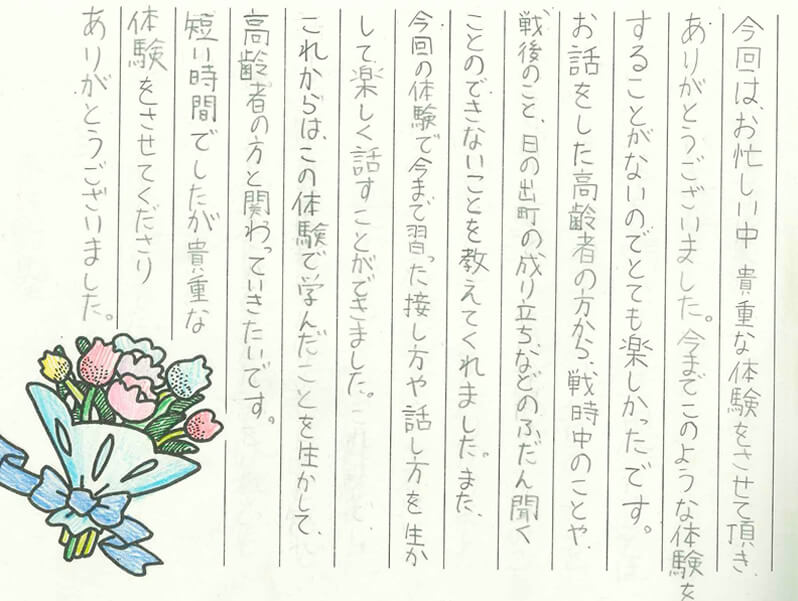 今回は、お忙しい中 貴重な体験をさせて頂き、
ありがとうございました。今までこのような体験を
することがないのでとても楽しかったです。
お話をした高齢者の方から、戦時中のことや、
戦後のこと、日の出町の成り立ち、などのふだん聞く
ことのできないことを教えてくれました。また、
今回の体験で今まで習った接し方や話し方を生か
して楽しく話すことができました。
これからは、この体験で学んだことを生かして、
高齢者の方と関わっていきたいです。
短い時間でしたが貴重な
体験をさせてくださり
ありがとうございました。